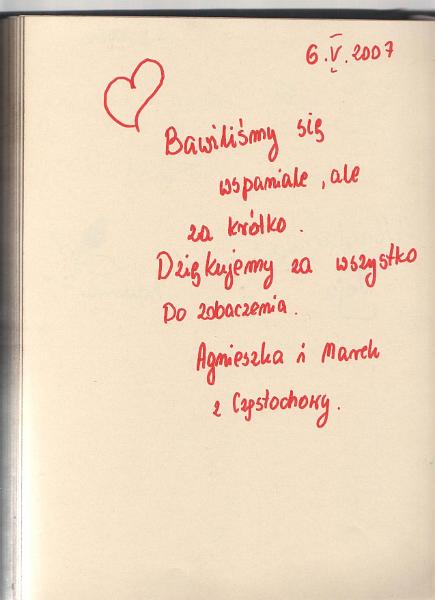 6.V.2007
Bawiliśmy się
wspaniale, ale
za krótko.
Dziękujemy za wszystko
Do zobaczenia.
Agnieszka i Marek
z Częstochowy.